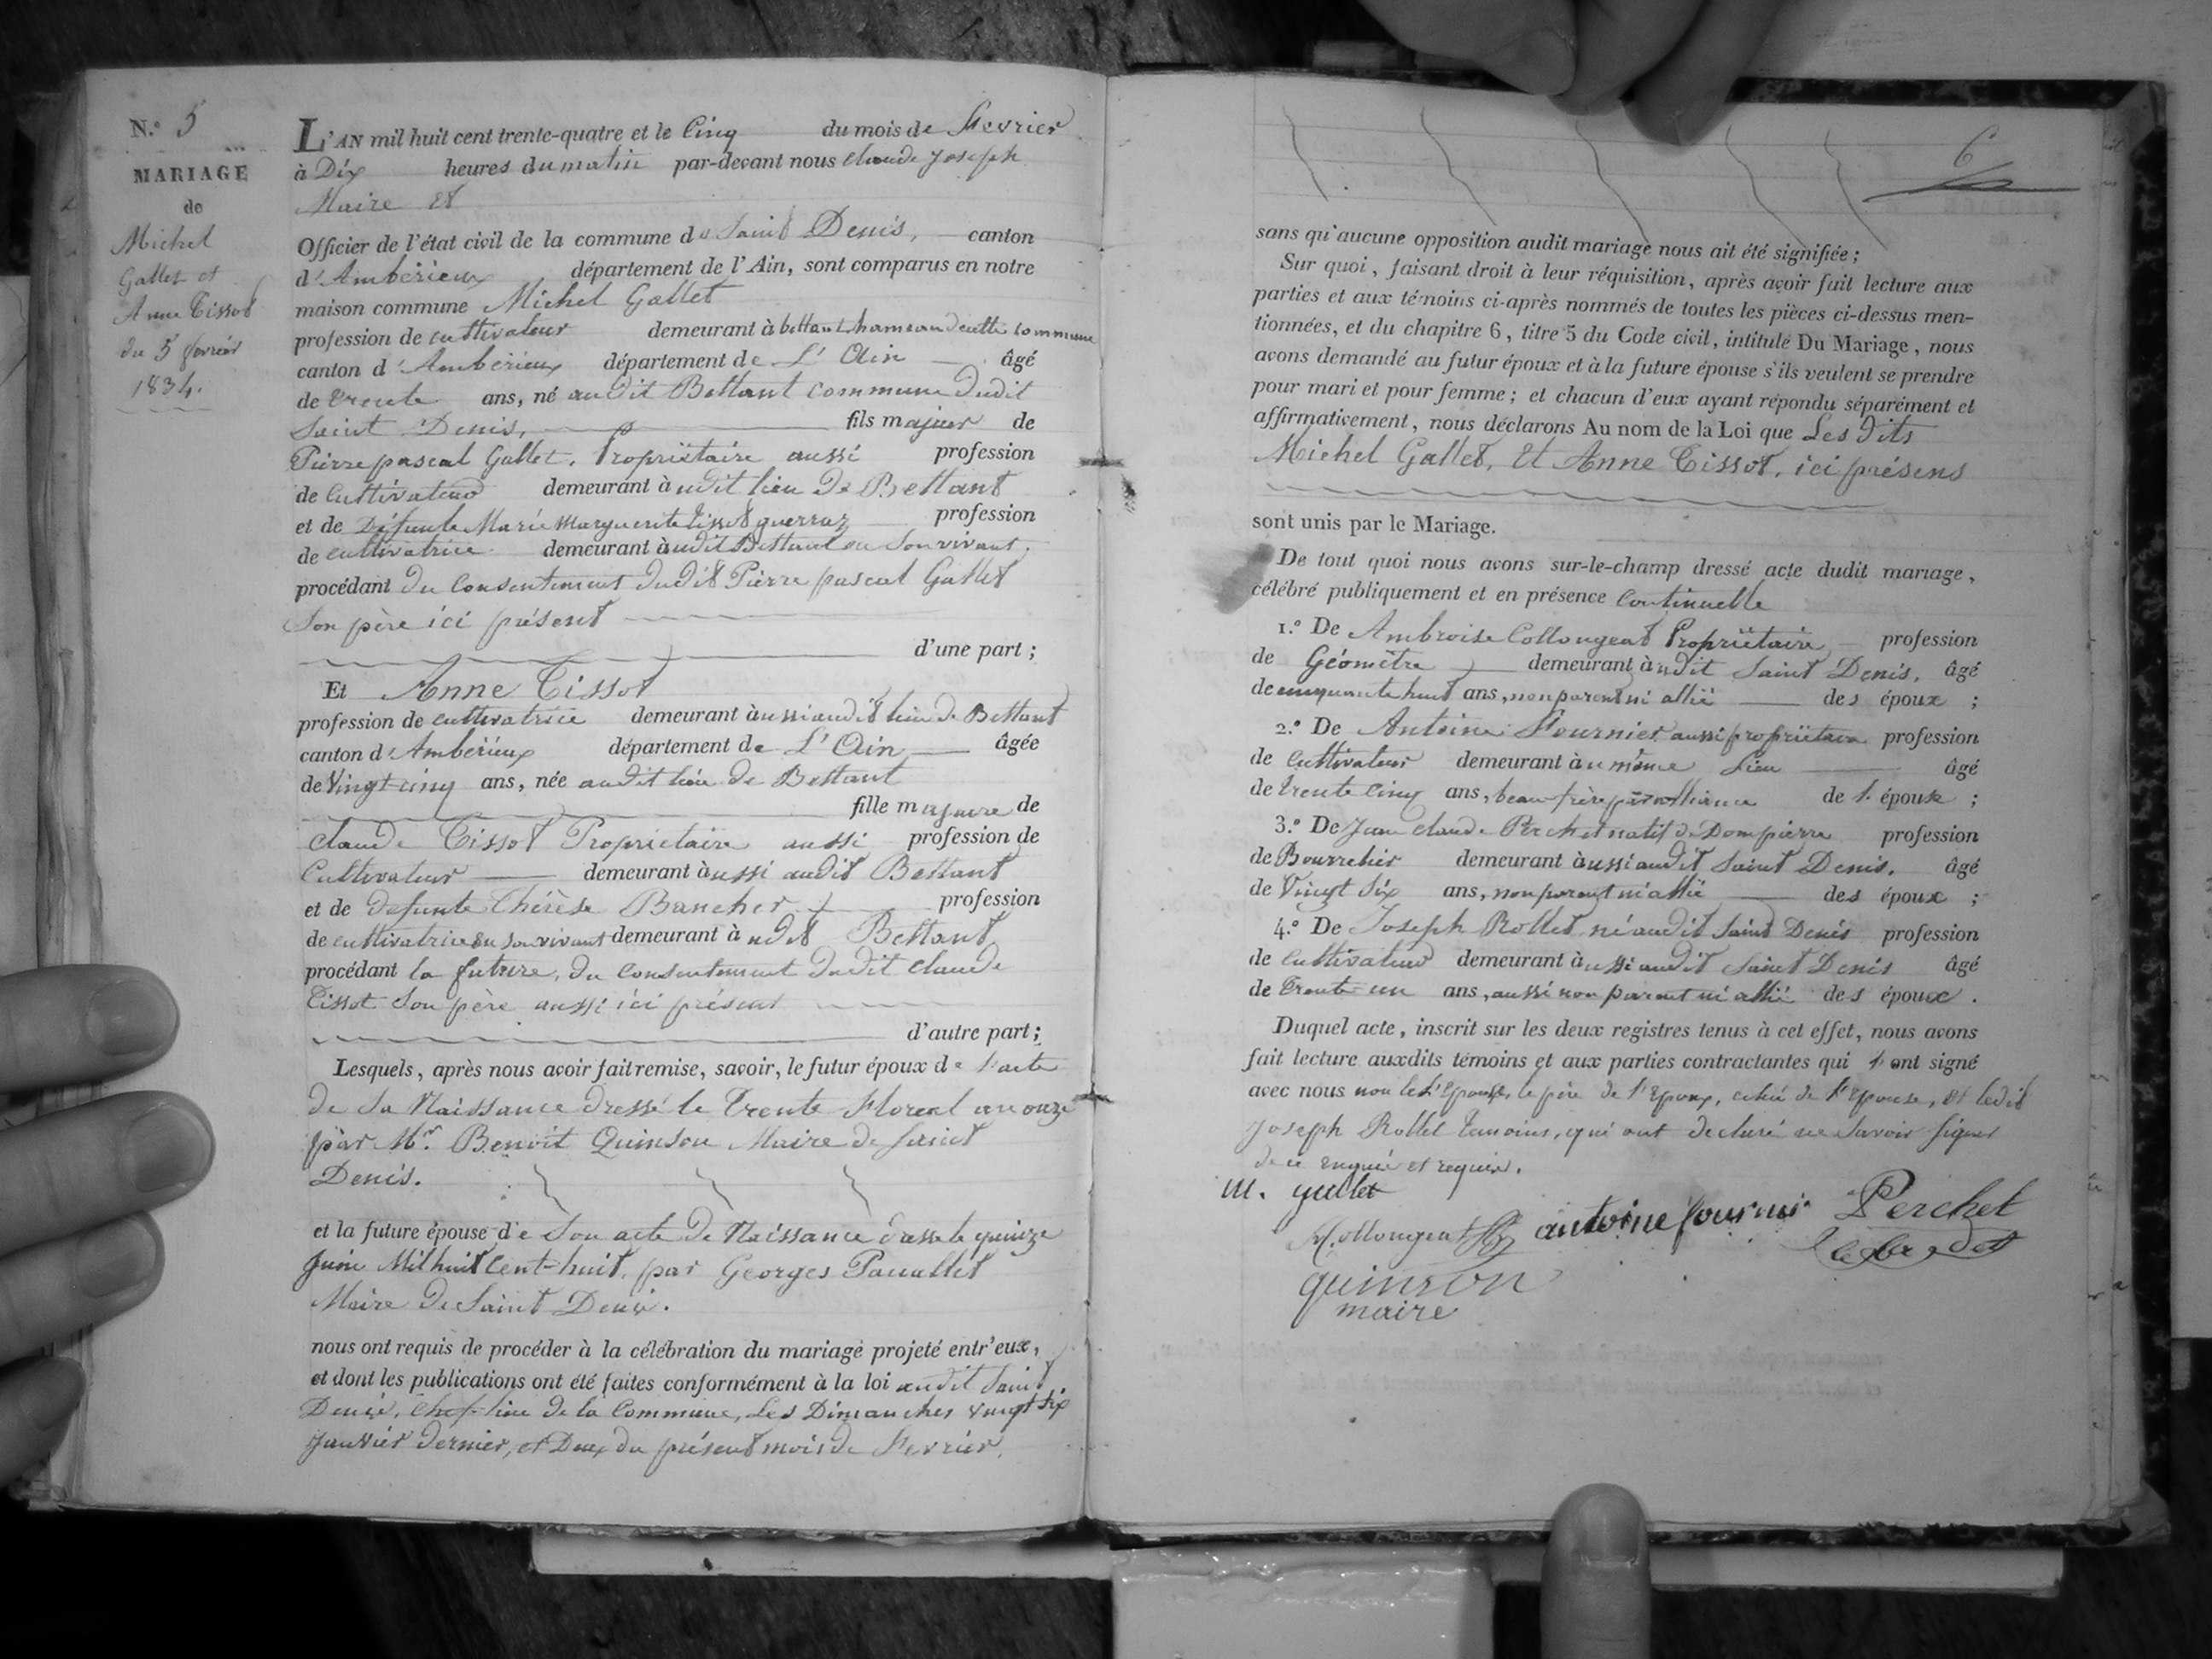 N.º 5
MARIAGE
de
Michel
Gallet et
Anne Tissot
du 5 fevrier
1834.
L'AN mil huit cent trente-quatre et le Cinq du mois de Fevrier
à Dix heures du matin par-devant nous Claude Joseph
Maire et
Officier de l'état civil de la commune de Saint Denis, canton
d'Ambérieux département de l'Ain, sont comparus en notre
maison commune Michel Gallet
profession de cultivateur demeurant à bettant hameau de cette commune
canton d'Ambérieux département de L'Ain âgé
de trente ans, né audit Bettant commune dudit
Saint Denis, fils majeur de
Pierre pascal Gallet, Propriétaire aussi profession
de Cultivateur demeurant à udit lieu de Bettant
et de Défunte Marie Marguerite Tissot guerraz profession
de cultivatrice demeurant à udit Bettant en son vivant.
procédant du Consentement dudit Pierre pascal Gallet
Son père ici présent
d'une part ;
Et Anne Tissot
profession de cultivatrice demeurant à ussi audit lieu de Bettant
canton d'Ambérieux département de L'Ain âgée
de Vingt cinq ans, née audit lieu de Bettant
fille majeure de
Claude Tissot Propriétaire aussi profession de
Cultivateur demeurant à ussi audit Bettant
et de defunte Thérèse Bancher profession
de cultivatrice en son vivant demeurant à udit Bettant
procédant la future, du Consentement dudit Claude
Tissot Son père aussi ici présent
d'autre part ;
Lesquels, après nous avoir fait remise, savoir, le futur époux de l'acte
de Sa Naissance dressé le trente Floreal an onze
par Mr. Benoit Quinson Maire de Saint
Denis.
et la future épouse de Son acte de Naissance dressé le quinze
Juin Mil huit Cent-huit, par Georges
Maire de Saint Denis.
nous ont requis de procéder à la célébration du mariage projeté entr'eux,
et dont les publications ont été faites conformément à la loi audit Saint
Denis, Chef-lieu de la Commune, Les Dimanches vingt six
Janvier dernier, et Deux du présent mois de Fevrier,
6
sans qu'aucune opposition audit mariage nous ait été signifiée ;
Sur quoi, faisant droit à leur réquisition, après avoir fait lecture aux
parties et aux témoins ci-après nommés de toutes les pièces ci-dessus men-
tionnées, et du chapitre 6, titre 5 du Code civil, intitulé Du Mariage, nous
avons demandé au futur époux et à la future épouse s'ils veulent se prendre
pour mari et pour femme ; et chacun d'eux ayant répondu séparément et
affirmativement, nous déclarons Au nom de la Loi que Les dits
Michel Gallet, Et Anne Tissot, ici présens
sont unis par le Mariage.
De tout quoi nous avons sur-le-champ dressé acte dudit mariage,
célébré publiquement et en présence Continuelle
1.º De Ambroise Collongeat Propriétaire profession
de Géomètre demeurant à udit Saint Denis, âgé
de cinquante huit ans, non parent ni allié des époux ;
2.º De Antoine Fournier aussi propriétaire profession
de Cultivateur demeurant à u même lieu âgé
de trente Cinq ans, beau-frère par alliance de l. épouse ;
3.º De Jean Claude Perchet natif de Dompierre profession
de Bourrelier demeurant à ussi audit Saint Denis, âgé
de Vingt Six ans, non parent ni allié des époux ;
4.º De Joseph Rollet né audit Saint Denis profession
de Cultivateur demeurant à ussi audit Saint Denis âgé
de Trente un ans, aussi non parent ni allié des époux.
Duquel acte, inscrit sur les deux registres tenus à cet effet, nous avons
fait lecture auxdits témoins et aux parties contractantes qui l'ont signé
avec nous non l'Epouse, le père de l'Epoux, celui de l'Epouse, et ledit
Joseph Rollet temoins, qui ont declaré ne Savoir signer
de ce enquis et requis.
M. gallet
Collongeat antoine fournier Perchet
quinson
maire